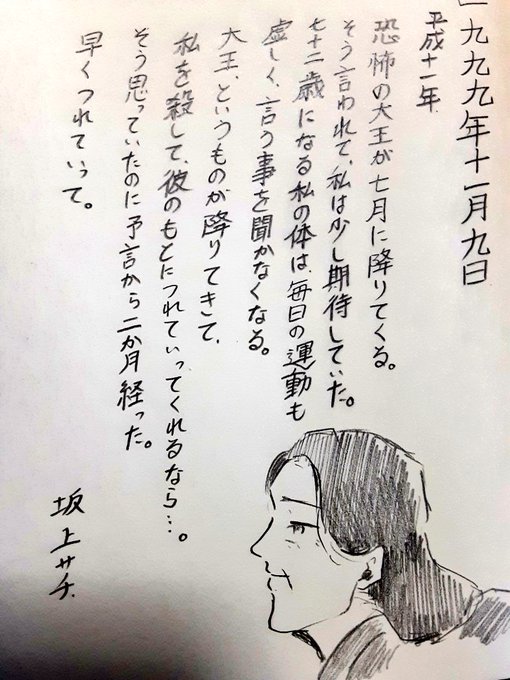 一九九九年十一月九日
平成十一年
恐怖の大王が七月に降りてくる。
そう言われて、私は少し期待していた。
七十二歳になる私の体は、毎日の運動も
虚しく、言う事を聞かなくなる。
大王、というものが降りてきて、
私を殺して、彼のもとにつれていってくれるなら…。
そう思っていたのに予言から二か月経った。
早くつれていって。
坂上サチ